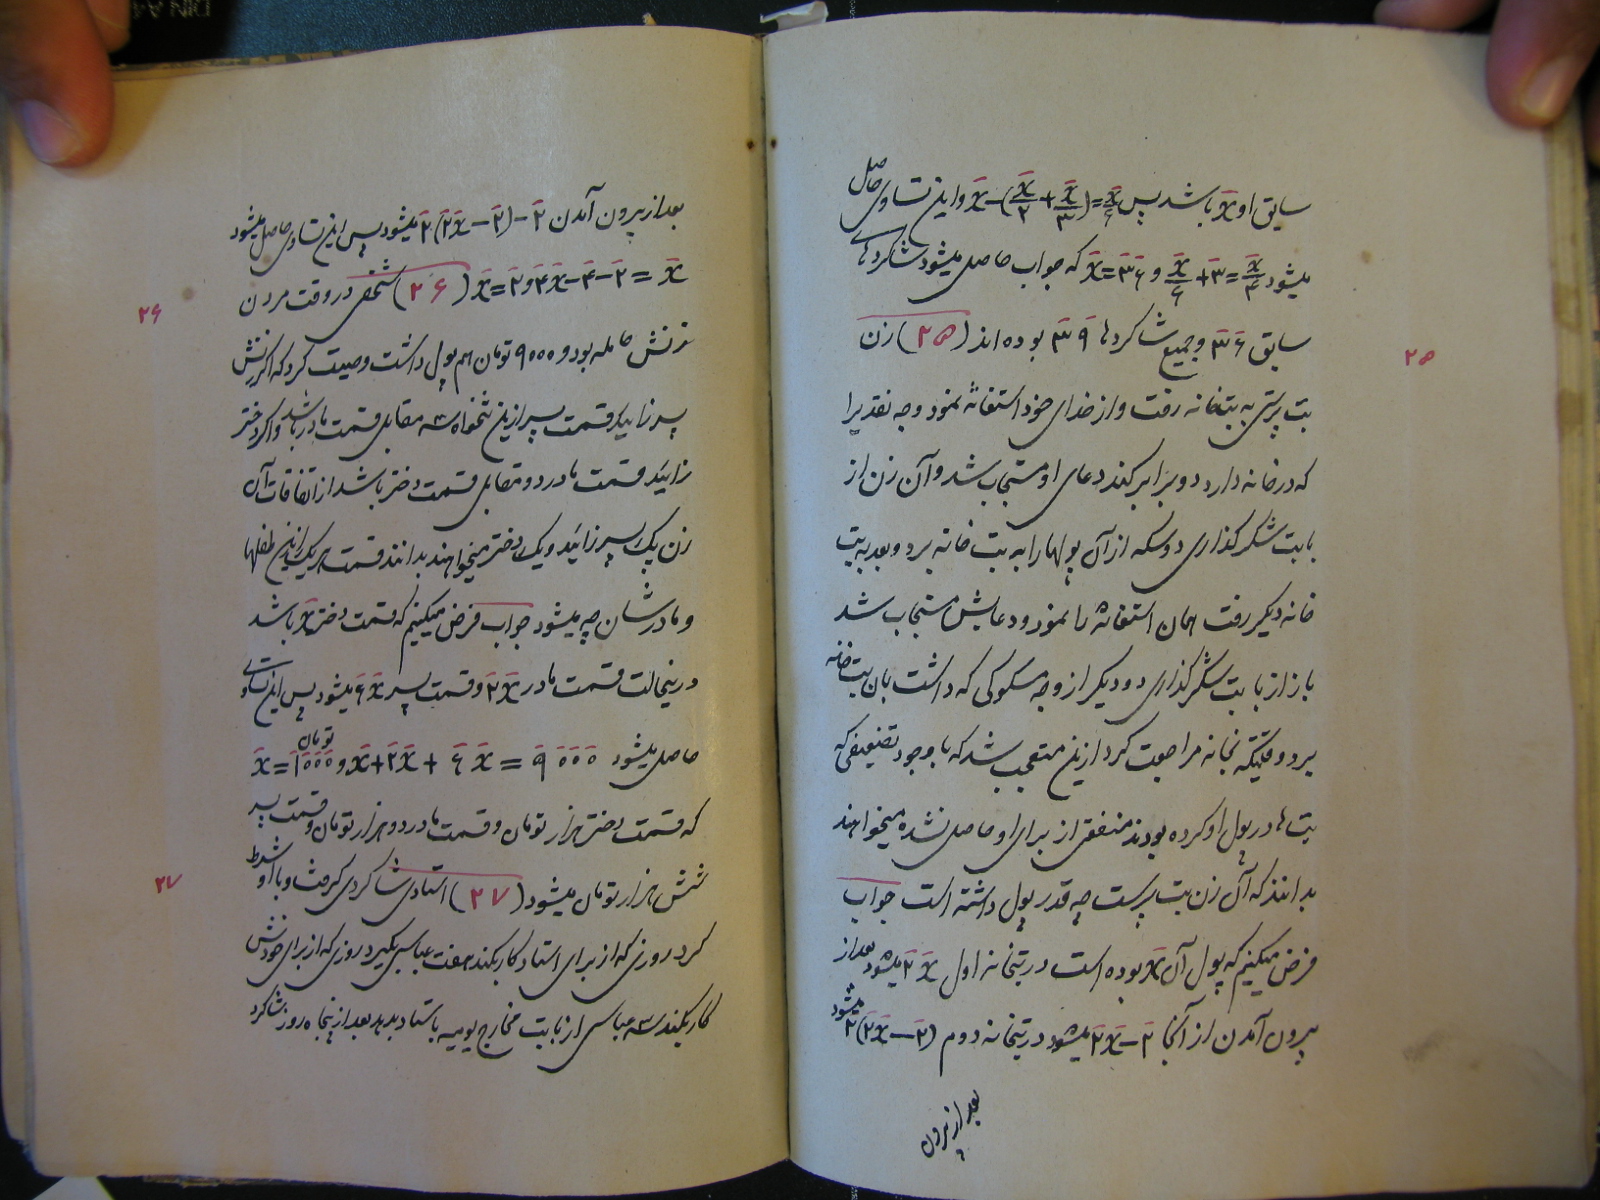 سابق او x̄ باشد پس x̄-(x̄/۲+x̄/۳)=x̄/۶ و این تساوی حاصل
میشود x̄/۶+۳̄=x̄/۴ و x̄=۳̄۶̄ که جواب حاصل میشود شاگردهای
سابق ۳̄۶̄ و جمیع شاگردها ۳̄۹̄ بوده اند (۲۵) زن
۲۵
بت پرستی به بتخانه رفت و از خدای خود استغاثه نمود وجه نقدیرا
که در خانه دارد دو برابر کند دعای او مستجاب شد و آن زن از
بابت شکر گذاری دو سکه از آن پولها را به بت خانه برد و بعد به بیت
خانه دیگر رفت همان استغاثه را نمود و دعایش مستجاب شد
باز از بابت شکر گذاری دو دیگر از وجه مسکوکی که داشت بان بت خانه
برد وقتیکه بخانه مراجعت کرد از این متعجب شد که با وجود تضعیفی که
بت ها در پول او کرده بودند منفعتی از برای او حاصل نشده میخواهند
بدانند که آن زن بت پرست چه قدر پول داشته است جواب
فرض میکنیم که پول آن x̄ بوده است در بتخانه اول ۲̄x̄ میشود بعد از
بیرون آمدن از آنجا ۲̄x̄-۲̄ میشود در بتخانه دوم ۲̄(۲̄x̄-۲̄) میشود
بعد از بیرون
بعد از بیرون آمدن ۲̄(۲̄x̄-۲̄)-۲̄ میشود پس این تساوی حاصل میشود
x̄=۴̄x̄-۴̄-۲̄ و x̄=۲̄ (۲۶) شخصی در وقت مردن
۲۶
زنش حامله بود و ۹۰۰۰ تومان هم پول داشت وصیت کرد که اگر زنش
پسر زائید قسمت پسر از این تنخواه سه مقابل قسمت مادر باشد و اگر دختر
زائید قسمت مادر دو مقابل قسمت دختر باشد از اتفاقات آن
زن یک پسر زائید و یک دختر میخواهند بدانند قسمت هر یک از این طفلها
و مادرشان چه میشود جواب فرض میکنیم که قسمت دختر x̄ باشد
در اینحالت قسمت مادر ۲̄x̄ و قسمت پسر ۶̄x̄ میشود پس این تساوی
حاصل میشود x̄+۲̄x̄+۶̄x̄=۹̄۰̄۰̄۰̄ و x̄=۱̄۰̄۰̄۰̄ تومان
که قسمت دختر هزار تومان و قسمت مادر دو هزار تومان و قسمت پسر
شش هزار تومان میشود (۲۷) استادی شاگردی گرفت و با او شرط
۲۷
کرد روزی که از برای استاد کار بکند هفت عباسی بگیرد روزی که از برای خودش
کار بکند سه عباسی از بابت مخارج یومیه باستاد بدهد بعد از پنجاه روز شاگرد